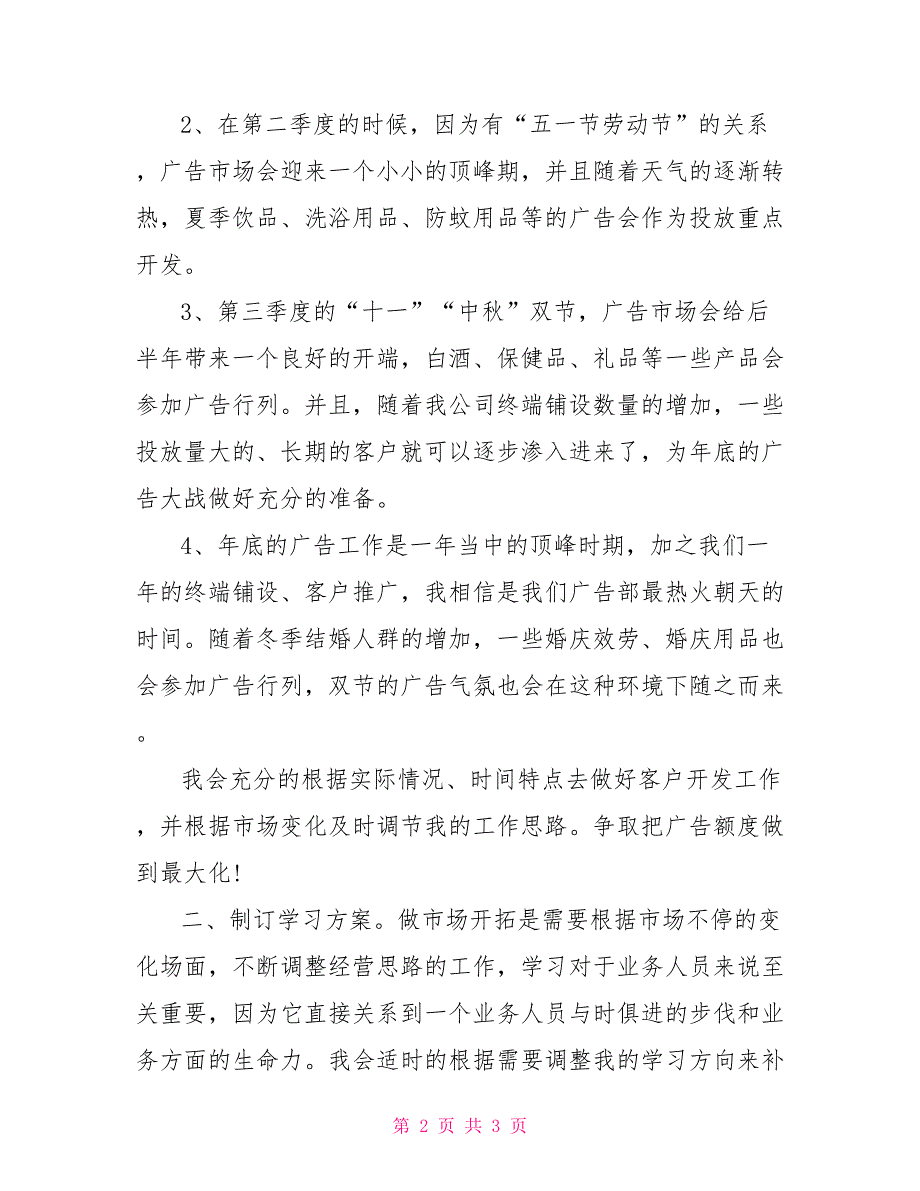 2、在第二季度的时候，因为有“五一节劳动节”的关系
，广告市场会迎来一个小小的顶峰期，并且随着天气的逐渐转
热，夏季饮品、洗浴用品、防蚊用品等的广告会作为投放重点
开发。
3、第三季度的“十一”“中秋”双节，广告市场会给后
半年带来一个良好的开端，白酒、保健品、礼品等一些产品会
参加广告行列。并且，随着我公司终端铺设数量的增加，一些
投放量大的、长期的客户就可以逐步渗入进来了，为年底的广
告大战做好充分的准备。
4、年底的广告工作是一年当中的顶峰时期，加之我们一
年的终端铺设、客户推广，我相信是我们广告部最热火朝天的
时间。随着冬季结婚人群的增加，一些婚庆效劳、婚庆用品也
会参加广告行列，双节的广告气氛也会在这种环境下随之而来
。
我会充分的根据实际情况、时间特点去做好客户开发工作
，并根据市场变化及时调节我的工作思路。争取把广告额度做
到最大化!
二、制订学习方案。做市场开拓是需要根据市场不停的变
化场面，不断调整经营思路的工作，学习对于业务人员来说至
关重要，因为它直接关系到一个业务人员与时俱进的步伐和业
务方面的生命力。我会适时的根据需要调整我的学习方向来补
第 2 页 共 3 页